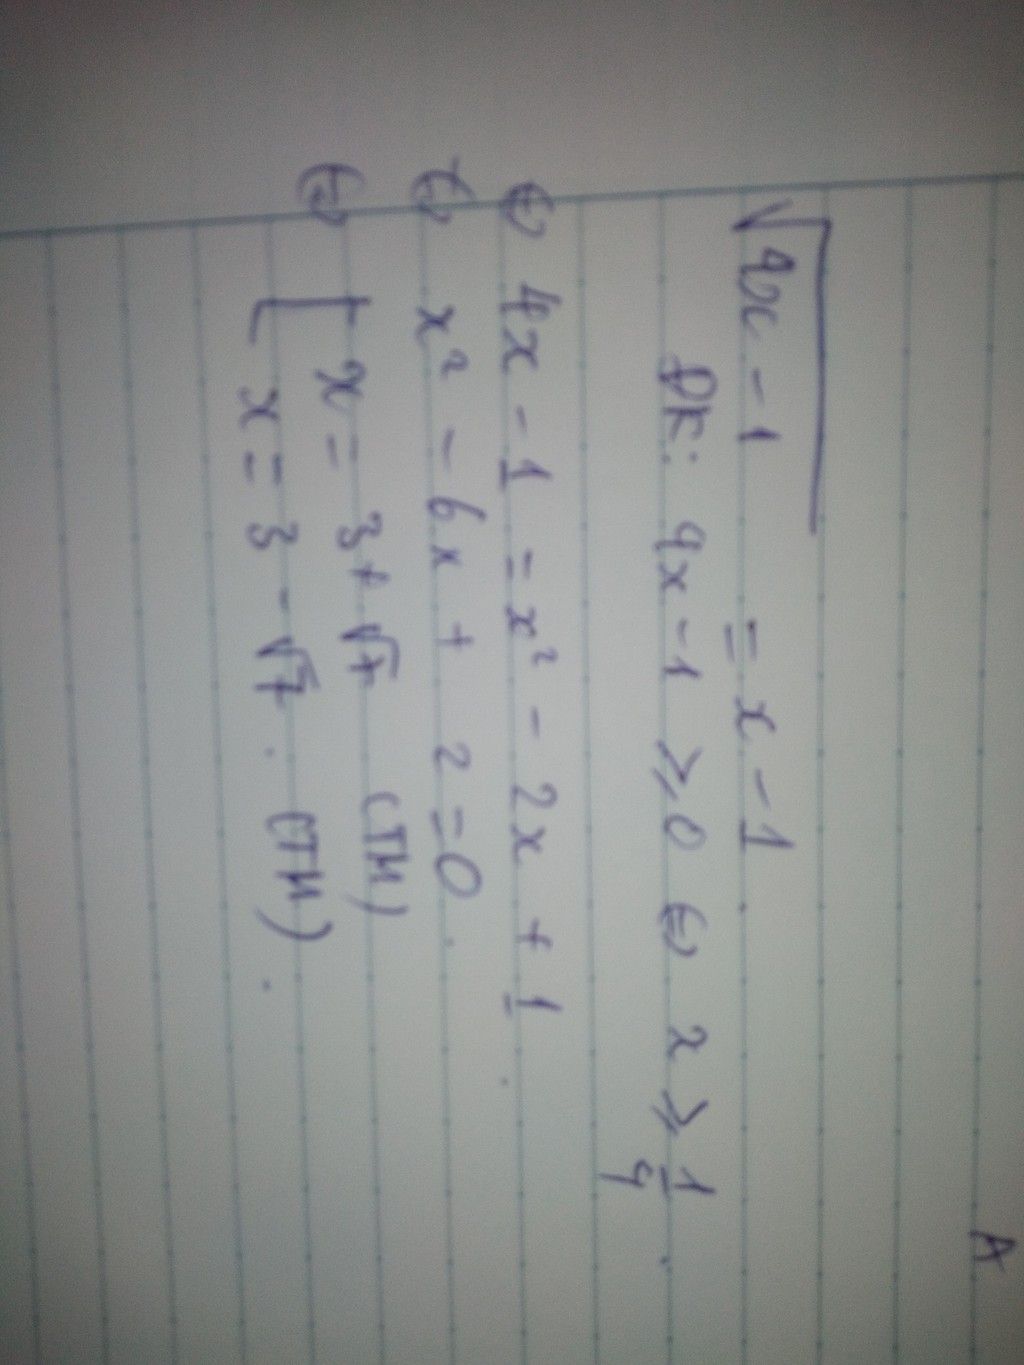 A
√(4x - 1) = x - 1.
ĐK: 4x - 1 ≥ 0 ⇔ x ≥ 1/4.
⇔ 4x - 1 = x² - 2x + 1.
⇔ x² - 6x + 2 = 0.
⇔ [ x = 3 + √7 (TM)
x = 3 - √7. (TM).